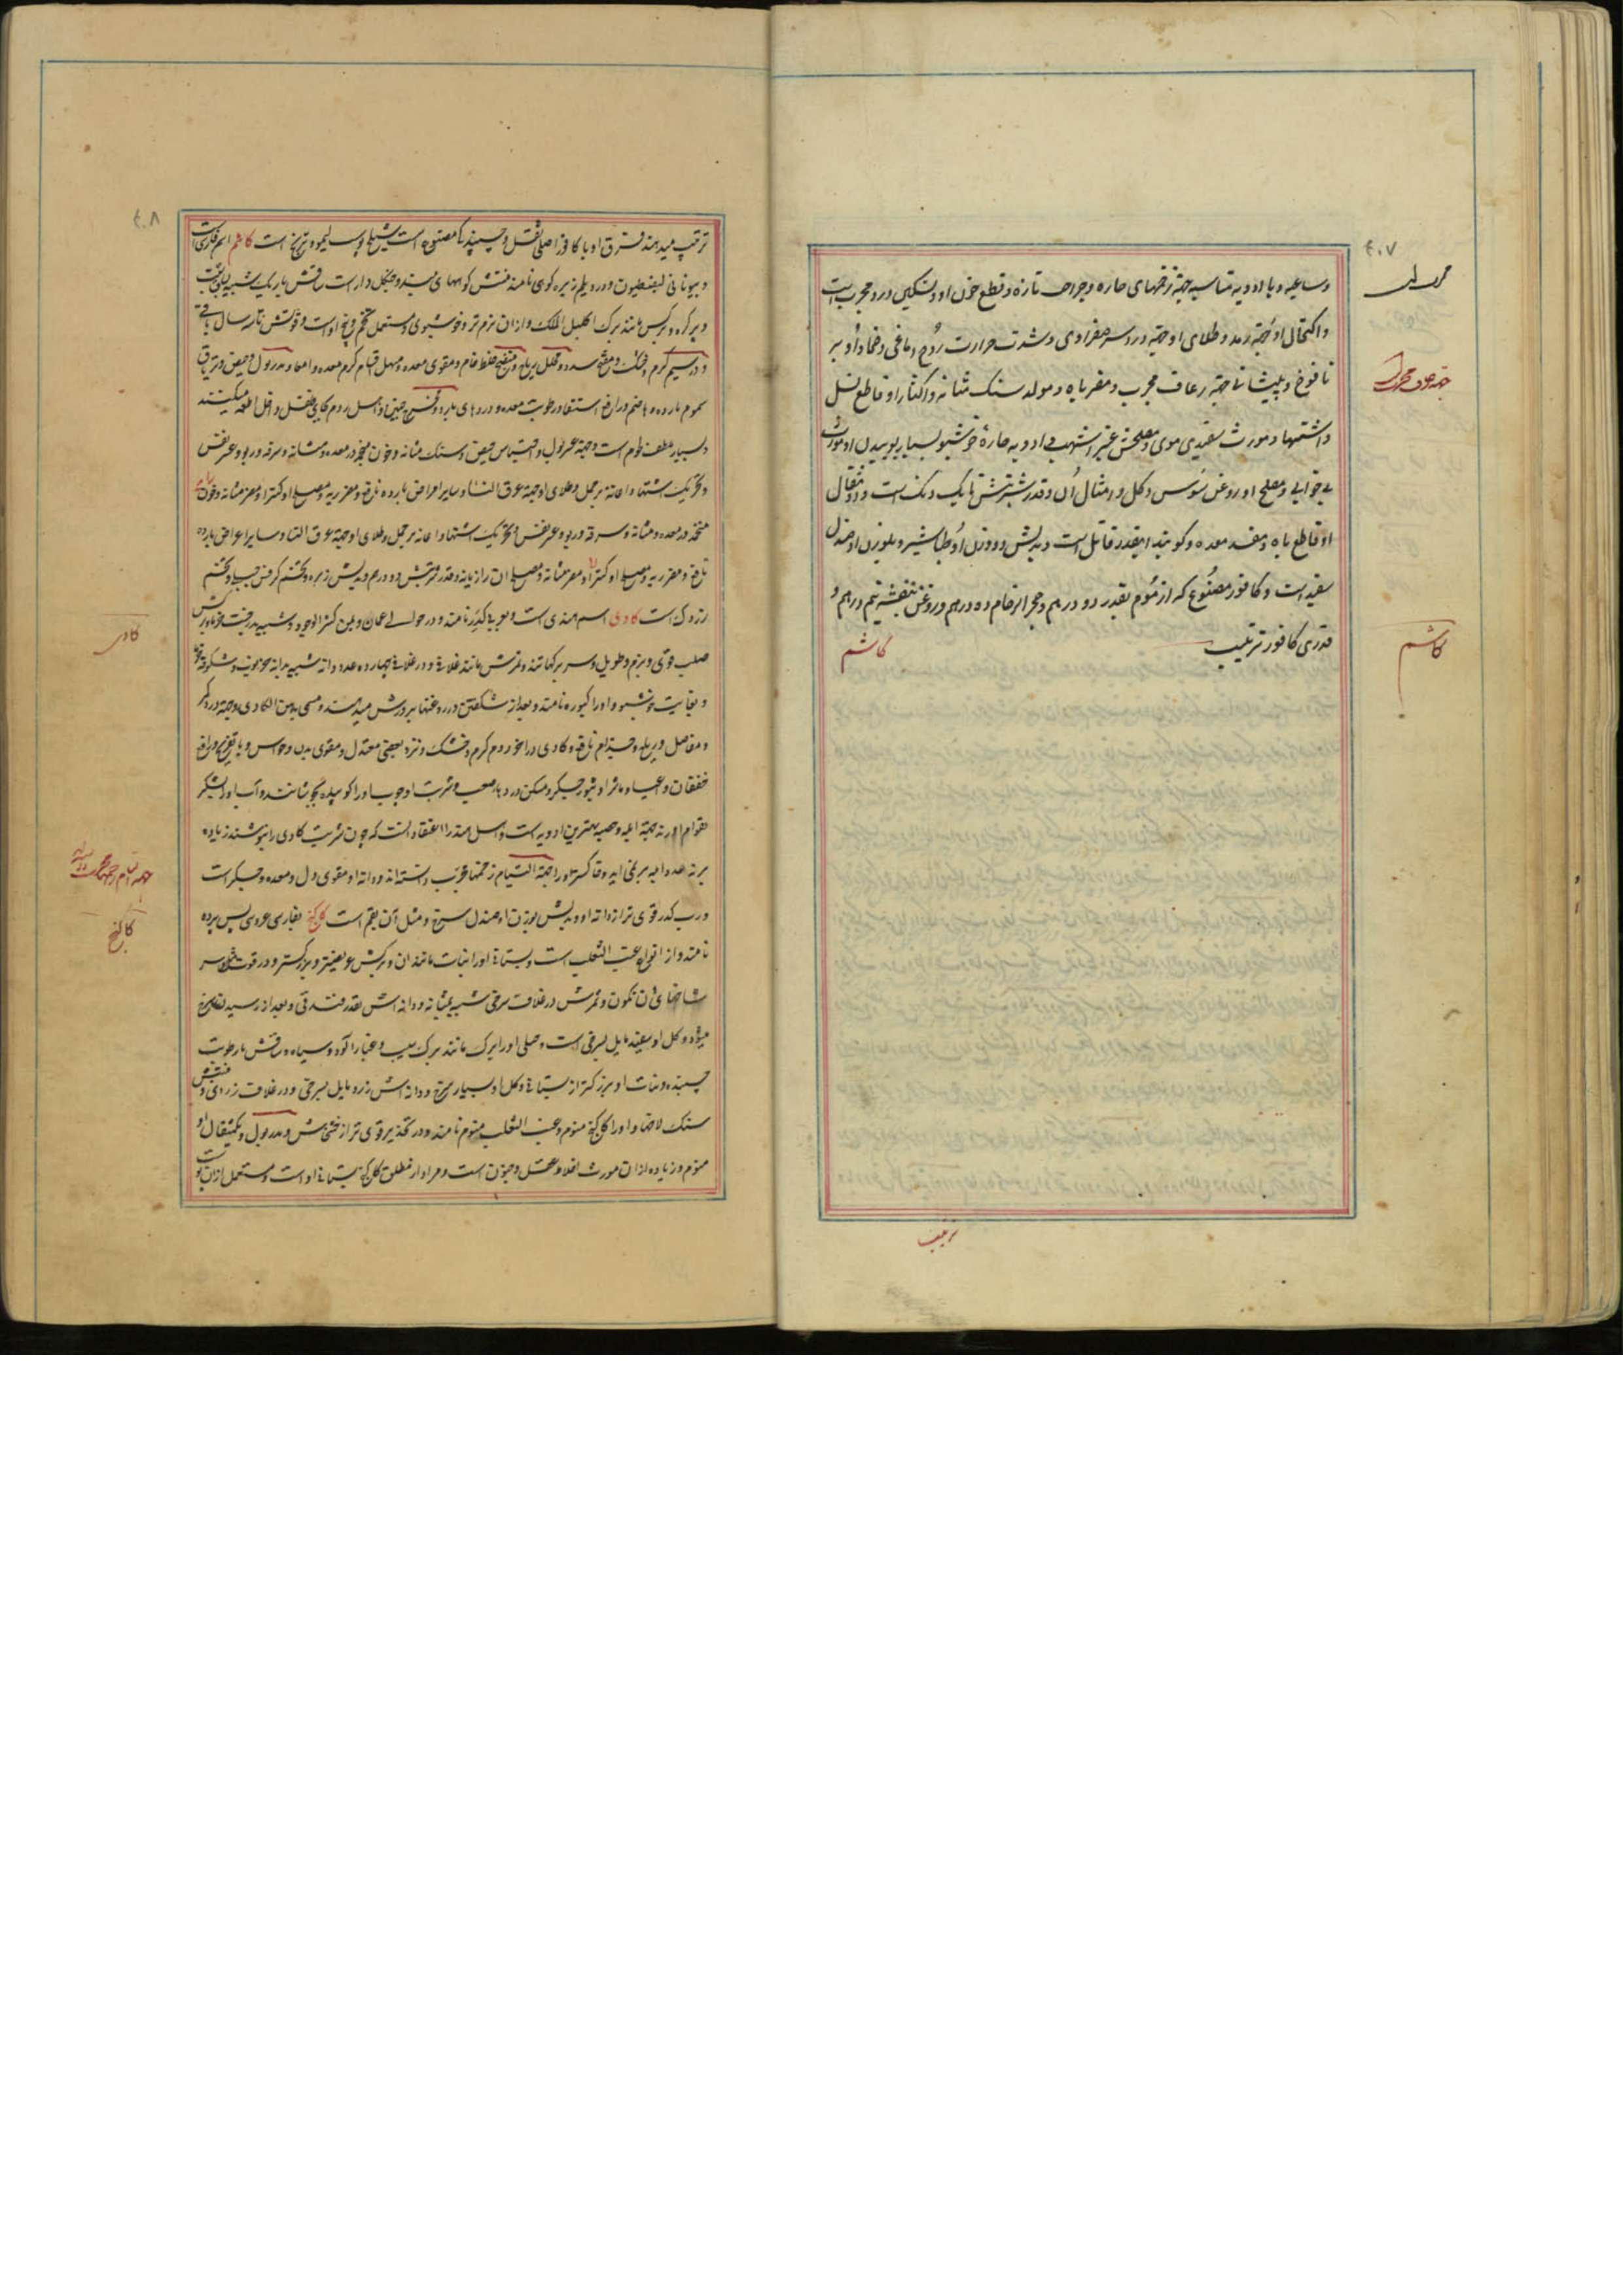 ۴۰۷
وساعیه و با ادویه مناسبه جهة زخمهای حاره و جراحت تازه و قطع خون او و تسکین درد مجرب است
واکتحال او جهة رمد و طلای او جهة درد سر صفراوی و شدت حرارت روح دماغی و ضماد او بر
یافوخ و پیشانی جهة رعاف مجرب و مضر باه و مولد سنک مثانه و اکثار او قاطع نسل
و اشتها و مورث سفیدی موی و مصلحش عنبر اشهب و ادویه حاره خوشبو و بسیار بوییدن او مورث
بیخوابی و مصلح او روغن سوسن و کل و امثال آن و قدر شربتش تا یک دنک است و دو مثقال
او قاطع باه و مفسد معده و کویند اینقدر قاتل است و بدلش دو وزن او طباشیر و بوزن او صندل
سفید است و کافور مصنوع که از موم بقدر دو درهم و حجر الرخام ده درهم و روغن بنفشه نیم درهم و
قدری کافور ترتیب
کاشم
کاشم
ترتیب
۴۰۸
ترتیب میدهند و فرق او با کافور اصلی ثقل و چسپندکی مصنوع است کاشم اسم فارسی است
و بیونانی لیغسطیون و در دیلم زیره کوهی نامند منبتش کوههای بلند و جنکل دار است ساقش باریک شبیه بساق شبت
و پر کره و برکش مانند برک اکلیل الملک و از ان نرم تر و خوشبوی و مستعمل تخم و بیخ او است و قوتش تا سه سال باقی
و در سیم کرم و خشک و مفتح سدد و محلل ریاح و منضج خلط خام و مقوی معده و مسهل اقسام کرم معده و امعا و مدر بول و حیض و تریاق
سموم بارده و هاضم و رافع استسقا و رطوبت معده و دردهای بارده و مخرج جنین و اهل روم بجای فلفل داخل اطعمه میکنند
و بسیار ملطف طعوم است و جهة عسر بول و احتباس حیض و سنک مثانه و خون منجمد در معده و مثانه و سرفه و ربو و عسر نفس
و تحریک اشتها و اعانه بر حمل و طلای او جهة عرق النسا و سایر امراض بارده نافع و مضر ریه و مصلح او کتیرا و مضر مثانه و خون
منجمد در معده و مثانه و سرفه و ربو و عسر نفس و تحریک اشتها و اعانه بر حمل و طلای او جهة عرق النسا و سایر امراض بارده
نافع و مضر ریه و مصلح او کتیرا و مضر مثانه و مصلح ان رازیانه و قدر شربتش دو درهم و بدلش زیره و تخم کرفس جبلی و تخم
زردک است کادی اسم هندی است و بعربی کدر نامند و در حوالی عمان و یمن کثیر الوجود و شبیه بدرخت خرما و برکش
صلب قوی و نرم و طویل و سر برکها تند و ثمرش مانند غلافی و در غلاف چهارده عدد دانه شبیه بدانه
و بغایت خوشبو و او را کیوره نامند و بعد از شکفتن در روغنها پرورش میدهند و مسمی بدهن الکادی و جهة درد کمر
و مفاصل و ریاح و جذام نافع و کادی در اخر دوم کرم و خشک و نزد بعضی معتدل و مقوی بدن و حواس و با تفریح و رافع
خفقان و اعیا و شراب او جوب او را کوبیده بجوشانند و آب او را با شکر
بقوام اورند جهة ابله و حصبه بهترین ادویه است و اهل هند را اعتقاد انست که چون شربت کادی را بنوشند زیاده
بر نه عدد ابله بر نمی اید و خاکستر او را جهة التیام زخمها مجرب دانسته اند و دانه او مقوی دل و معده و جکر است
و رب کدر قوی تر از دانه او و بدلش بوزن او صندل سرخ و مثل آن بقم است کاکنج بفارسی عروس پس پرده
نامند و از انواع عنب الثعلب است و بستانی او را نبات مانند ان و برکش عریضتر و بزرکتر و در قوت مثل او و سر
شاخهای ان نکون و ثمرش در غلاف سرخی شبیه بمثانه و دانه اش بقدر فندقی و بعد از رسیدن سرخ
میشود و کل او سفید مایل بسرخی است و جبلی او را برک مانند برک سیب و غبار آلوده و سیاه و ساقش با رطوبت
چسپنده و نبات او بزرکتر از بستانی و کل او بسیار سرخ و دانه اش زرد مایل بسرخی و در غلاف زردی و منبتش
سنک لاخها و او را کاکنج منوم و عنب الثعلب منوم نامند و در تخدیر قوی تر از خشخاش و مدر بول و یکمثقال او
منوم و زیاده از ان مورث اختلاط عقل و جنون است و مراد از مطلق کاکنج بستانی او است و مستعمل از ان
کادی
کاکنج